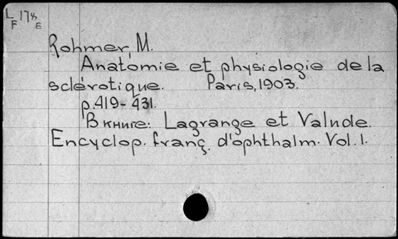 L 178
F E
Rohmer, M.
Anatomie et physiologie de la
sclérotique. Paris, 1903.
p. 419-431.
В книге: Lagrange et Valude.
Encyclop. franç. d'ophthalm. Vol. 1.